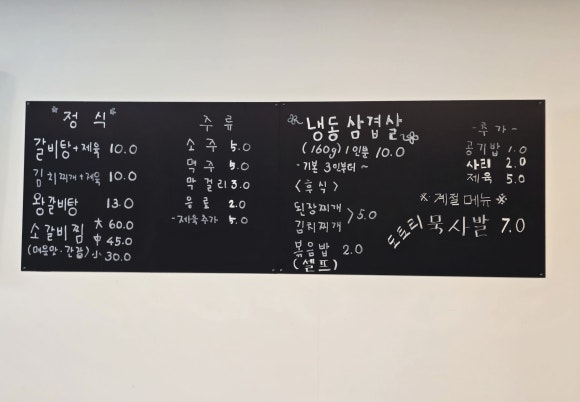 정식
갈비탕+제육 10.0
김치찌개+제육 10.0
왕갈비탕 13.0
소갈비찜 大 60.0
中 45.0
(매운맛·간장) 小 30.0
주류
소주 5.0
맥주 5.0
막걸리 3.0
음료 2.0
-제육추가 5.0
냉동삼겹살
(160g) 1인분 10.0
-기본 3인부터~
<후식>
된장찌개
김치찌개 >5.0
볶음밥 2.0
(셀프)
-추가-
공기밥 1.0
사리 2.0
제육 5.0
※ 계절메뉴 ※
도토리묵사발 7.0